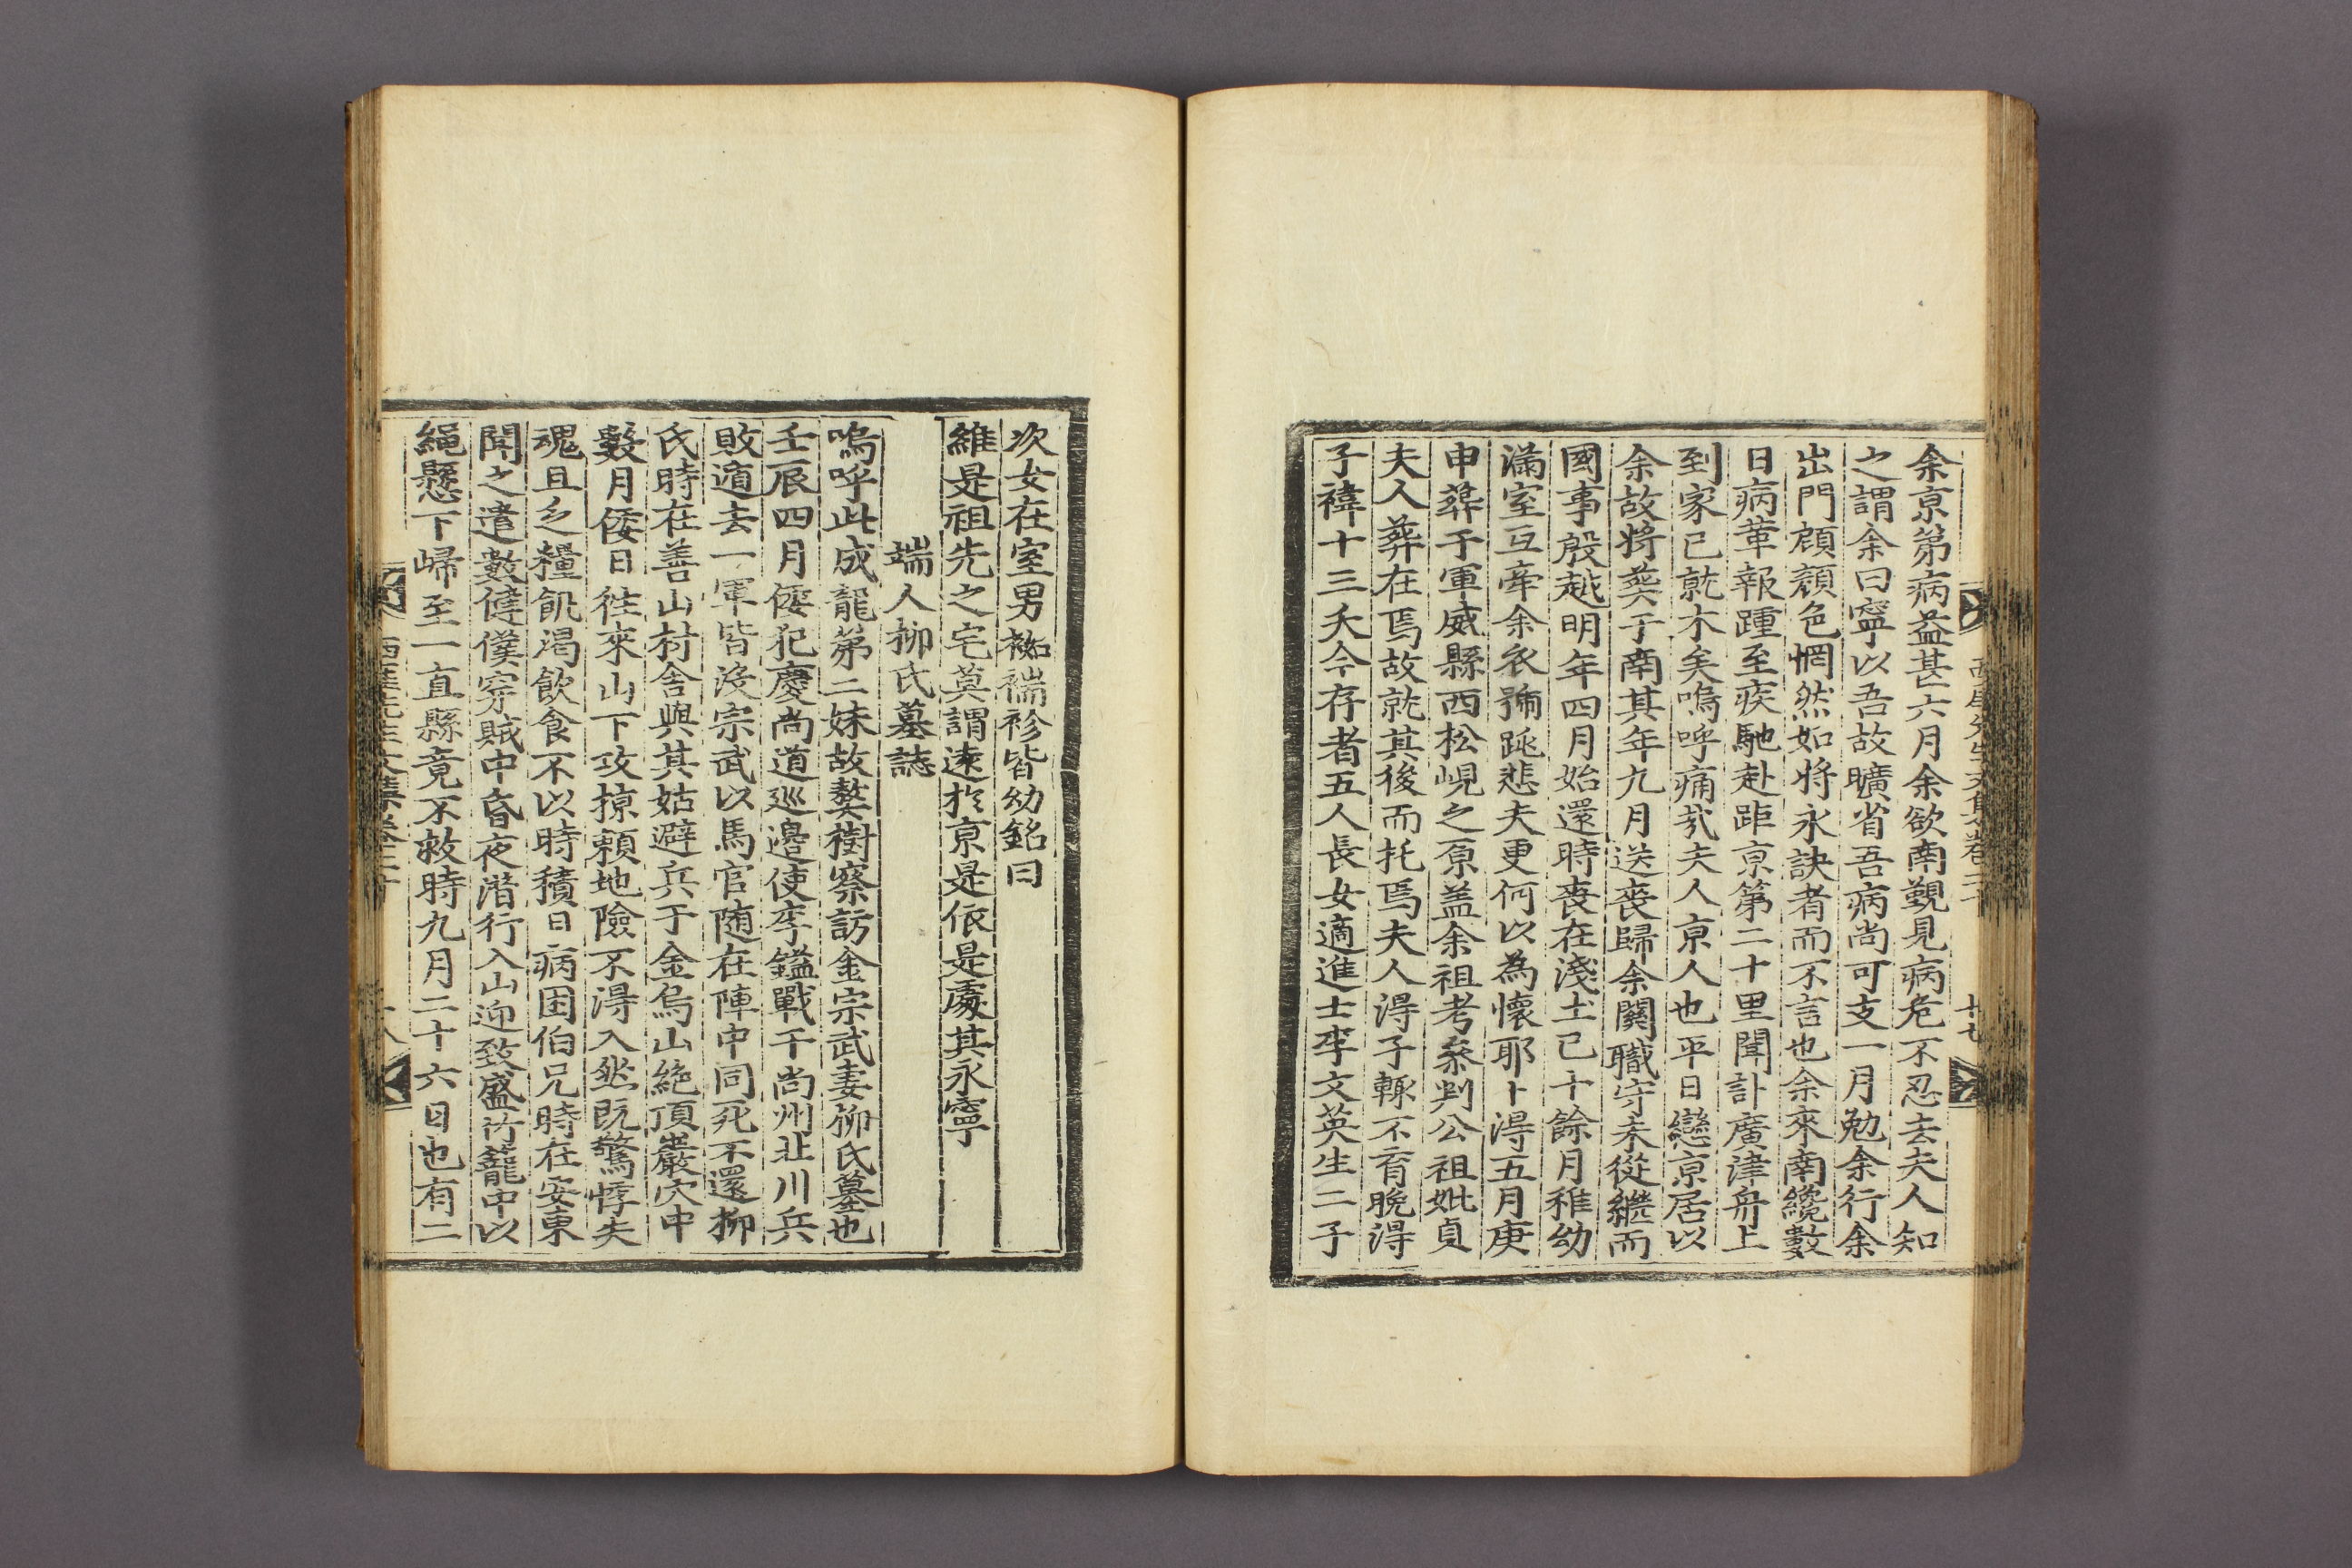 余京第病益甚六月余欲南覲見病危不忍去夫人知
之謂余曰寧以吾故曠省吾病尚可支一月勉余行余
出門顧顏色惘然如將永訣者而不言也余來南纔數
日病革報踵至疾馳赴距京第二十里聞訃廣津舟上
到家已就木矣嗚呼痛㢤夫人京人也平日戀京居以
余故將葬于南其年九月送喪歸余關職守未從繼而
國事殷越明年四月始還時喪在淺土已十餘月稚幼
滿室互牽余衣號跳悲夫更何以為懷耶卜得五月庚
申葬于軍威縣西松峴之原盖余祖考叅判公祖妣貞
夫人葬在焉故就其後而托焉夫人得子輒不育晩得
子褘十三夭今存者五人長女適進士李文英生二子
西厓先生文集卷二十 十七
次女在室男袽褍袗皆幼銘曰
維是祖先之宅莫謂遠於京是依是處其永寧
端人柳氏墓誌
嗚呼此成龍第二妹故獒樹察訪金宗武妻柳氏墓也
壬辰四月倭犯慶尚道巡邊使李鎰戰于尚州北川兵
敗遁去一軍皆沒宗武以馬官随在陣中同死不還柳
氏時在善山村舎與其姑避兵于金烏山絶頂巖穴中
數月倭日徃來山下攻掠頼地險不得入然既驚悸失
魂且乏糧飢渴飮食不以時積日病困伯兄時在安東
聞之遣數健僕穿賊中昏夜潜行入山迎致盛竹籠中以
繩懸下歸至一直縣竟不救時九月二十六日也有二
西厓先生文集卷二十 十八